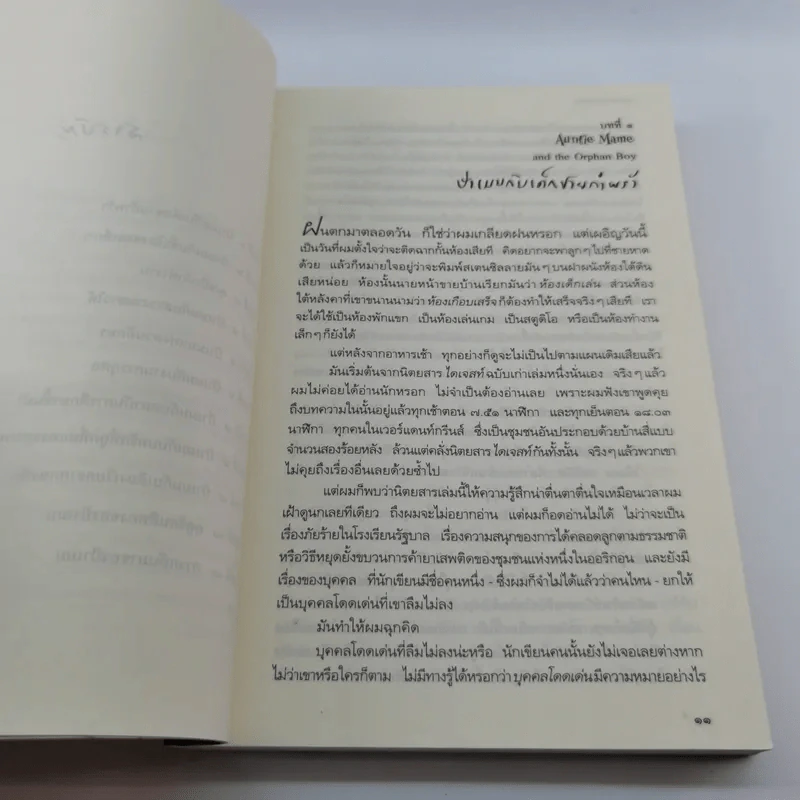 สารบัญ
บทที่ ๑
Auntie Mame
and the Orphan Boy
ป้าแมมกับเด็กชายกำพร้า
ฝนตกมาตลอดวัน ก็ใช่ว่าผมเกลียดฝนหรอก แต่เผอิญวันนี้
เป็นวันที่ผมตั้งใจว่าจะติดฉากกั้นห้องเสียที คิดอยากจะพาลูกๆ ไปที่ชายหาด
ด้วย แล้วก็หมายใจอยู่ว่าจะพิมพ์สเตนซิลลายมันๆ บนฝาผนังห้องใต้ดิน
เสียหน่อย ห้องนั้นนายหน้าขายบ้านเรียกมันว่า ห้องเด็กเล่น ส่วนห้อง
ใต้หลังคาที่เขาขนานนามว่า ห้องเกือบเสร็จ ก็ต้องทำให้เสร็จจริงๆ เสียที เรา
จะได้ใช้เป็นห้องพักแขก เป็นห้องเล่นเกม เป็นสตูดิโอ หรือเป็นห้องทำงาน
เล็กๆ ก็ยังได้
แต่หลังจากอาหารเช้า ทุกอย่างก็ดูจะไม่เป็นไปตามแผนเดิมเสียแล้ว
มันเริ่มต้นจากนิตยสาร ไดเจสท์ ฉบับเก่าเล่มหนึ่งนั่นเอง จริงๆ แล้ว
ผมไม่ค่อยได้อ่านนักหรอก ไม่จำเป็นต้องอ่านเลย เพราะผมฟังเขาพูดคุย
ถึงบทความในนั้นอยู่แล้วทุกเช้าตอน ๗.๕๑ นาฬิกา และทุกเย็นตอน ๑๘.๐๓
นาฬิกา ทุกคนในเวอร์แดนท์กรีนส์ ซึ่งเป็นชุมชนอันประกอบด้วยบ้านสี่แบบ
จำนวนสองร้อยหลัง ล้วนแต่คลั่งนิตยสาร ไดเจสท์ กันทั้งนั้น จริงๆ แล้วพวกเขา
ไม่คุยถึงเรื่องอื่นเลยด้วยซ้ำไป
แต่ผมก็พบว่านิตยสารเล่มนี้ให้ความรู้สึกน่าตื่นตาตื่นใจเหมือนเวลาผม
เฝ้าดูนกเลยทีเดียว ถึงผมจะไม่อยากอ่าน แต่ผมก็อดอ่านไม่ได้ ไม่ว่าจะเป็น
เรื่องภัยร้ายในโรงเรียนรัฐบาล เรื่องความสนุกของการได้คลอดลูกตามธรรมชาติ
หรือวิธีหยุดยั้งขบวนการค้ายาเสพติดของชุมชนแห่งหนึ่งในออริกอน และยังมี
เรื่องของบุคคล ที่นักเขียนมีชื่อคนหนึ่ง - ซึ่งผมก็จำไม่ได้แล้วว่าคนไหน - ยกให้
เป็นบุคคลโดดเด่นที่เขาลืมไม่ลง
มันทำให้ผมฉุกคิด
บุคคลโดดเด่นที่ลืมไม่ลงน่ะหรือ นักเขียนคนนั้นยังไม่เจอเลยต่างหาก
ไม่ว่าเขาหรือใครก็ตาม ไม่มีทางรู้ได้หรอกว่า บุคคลโดดเด่น มีความหมายอย่างไร
๑๑